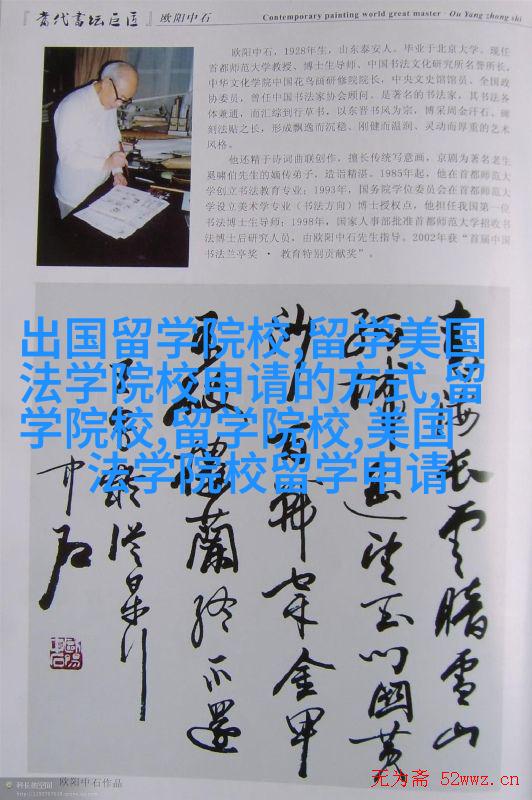 『當代書坛巨匠』欧阳中石
Contemporary painting world great master · Ou Yang zhong shi
欧阳中石，1928年生，山东泰安人。毕业于北京大学。现任
首都师范大学教授、博士生导师、中国书法文化研究所名誉所长，
中华文化学院中国花鸟画研修院院长，中央文史馆馆员、全国政
协委员，曾任中国书法家协会顾问。是著名的书法家，其书法各
体兼通，而汇综到行草书，以东晋书风为宗，博采周金汗石、碑
刻法贴之长，形成飘逸而沉稳、刚健而温润、灵动而厚重的艺术
风格。
他还精于诗词曲联创作，擅长传统写意画，京剧为著名老生
奚啸伯先生的嫡传弟子，造诣精湛。1985年起，他在首都师范大
学创立书法教育专业；1993年，国务院学位委员会在首都师范大
学设立美术学专业（书法方向）博士授权点，他担任我国第一位
书法博士生导师；1998年，国家人事部批准首都师范大学招收书
法博士后研究人员，由欧阳中石先生指导。2002年获“首届中国
书法兰亭奖 · 教育特别贡献奖”。
出国留学院校,留学美国
法学院校申请的方式,留
学院校,留学院校,美国
法学院校留学申请
青海长云暗雪山
孤城遥望玉门关黄
沙百战穿金甲
不破楼兰终不还
王昌龄从军行
中石
欧阳中石作品
无为斋 52wwz.cn